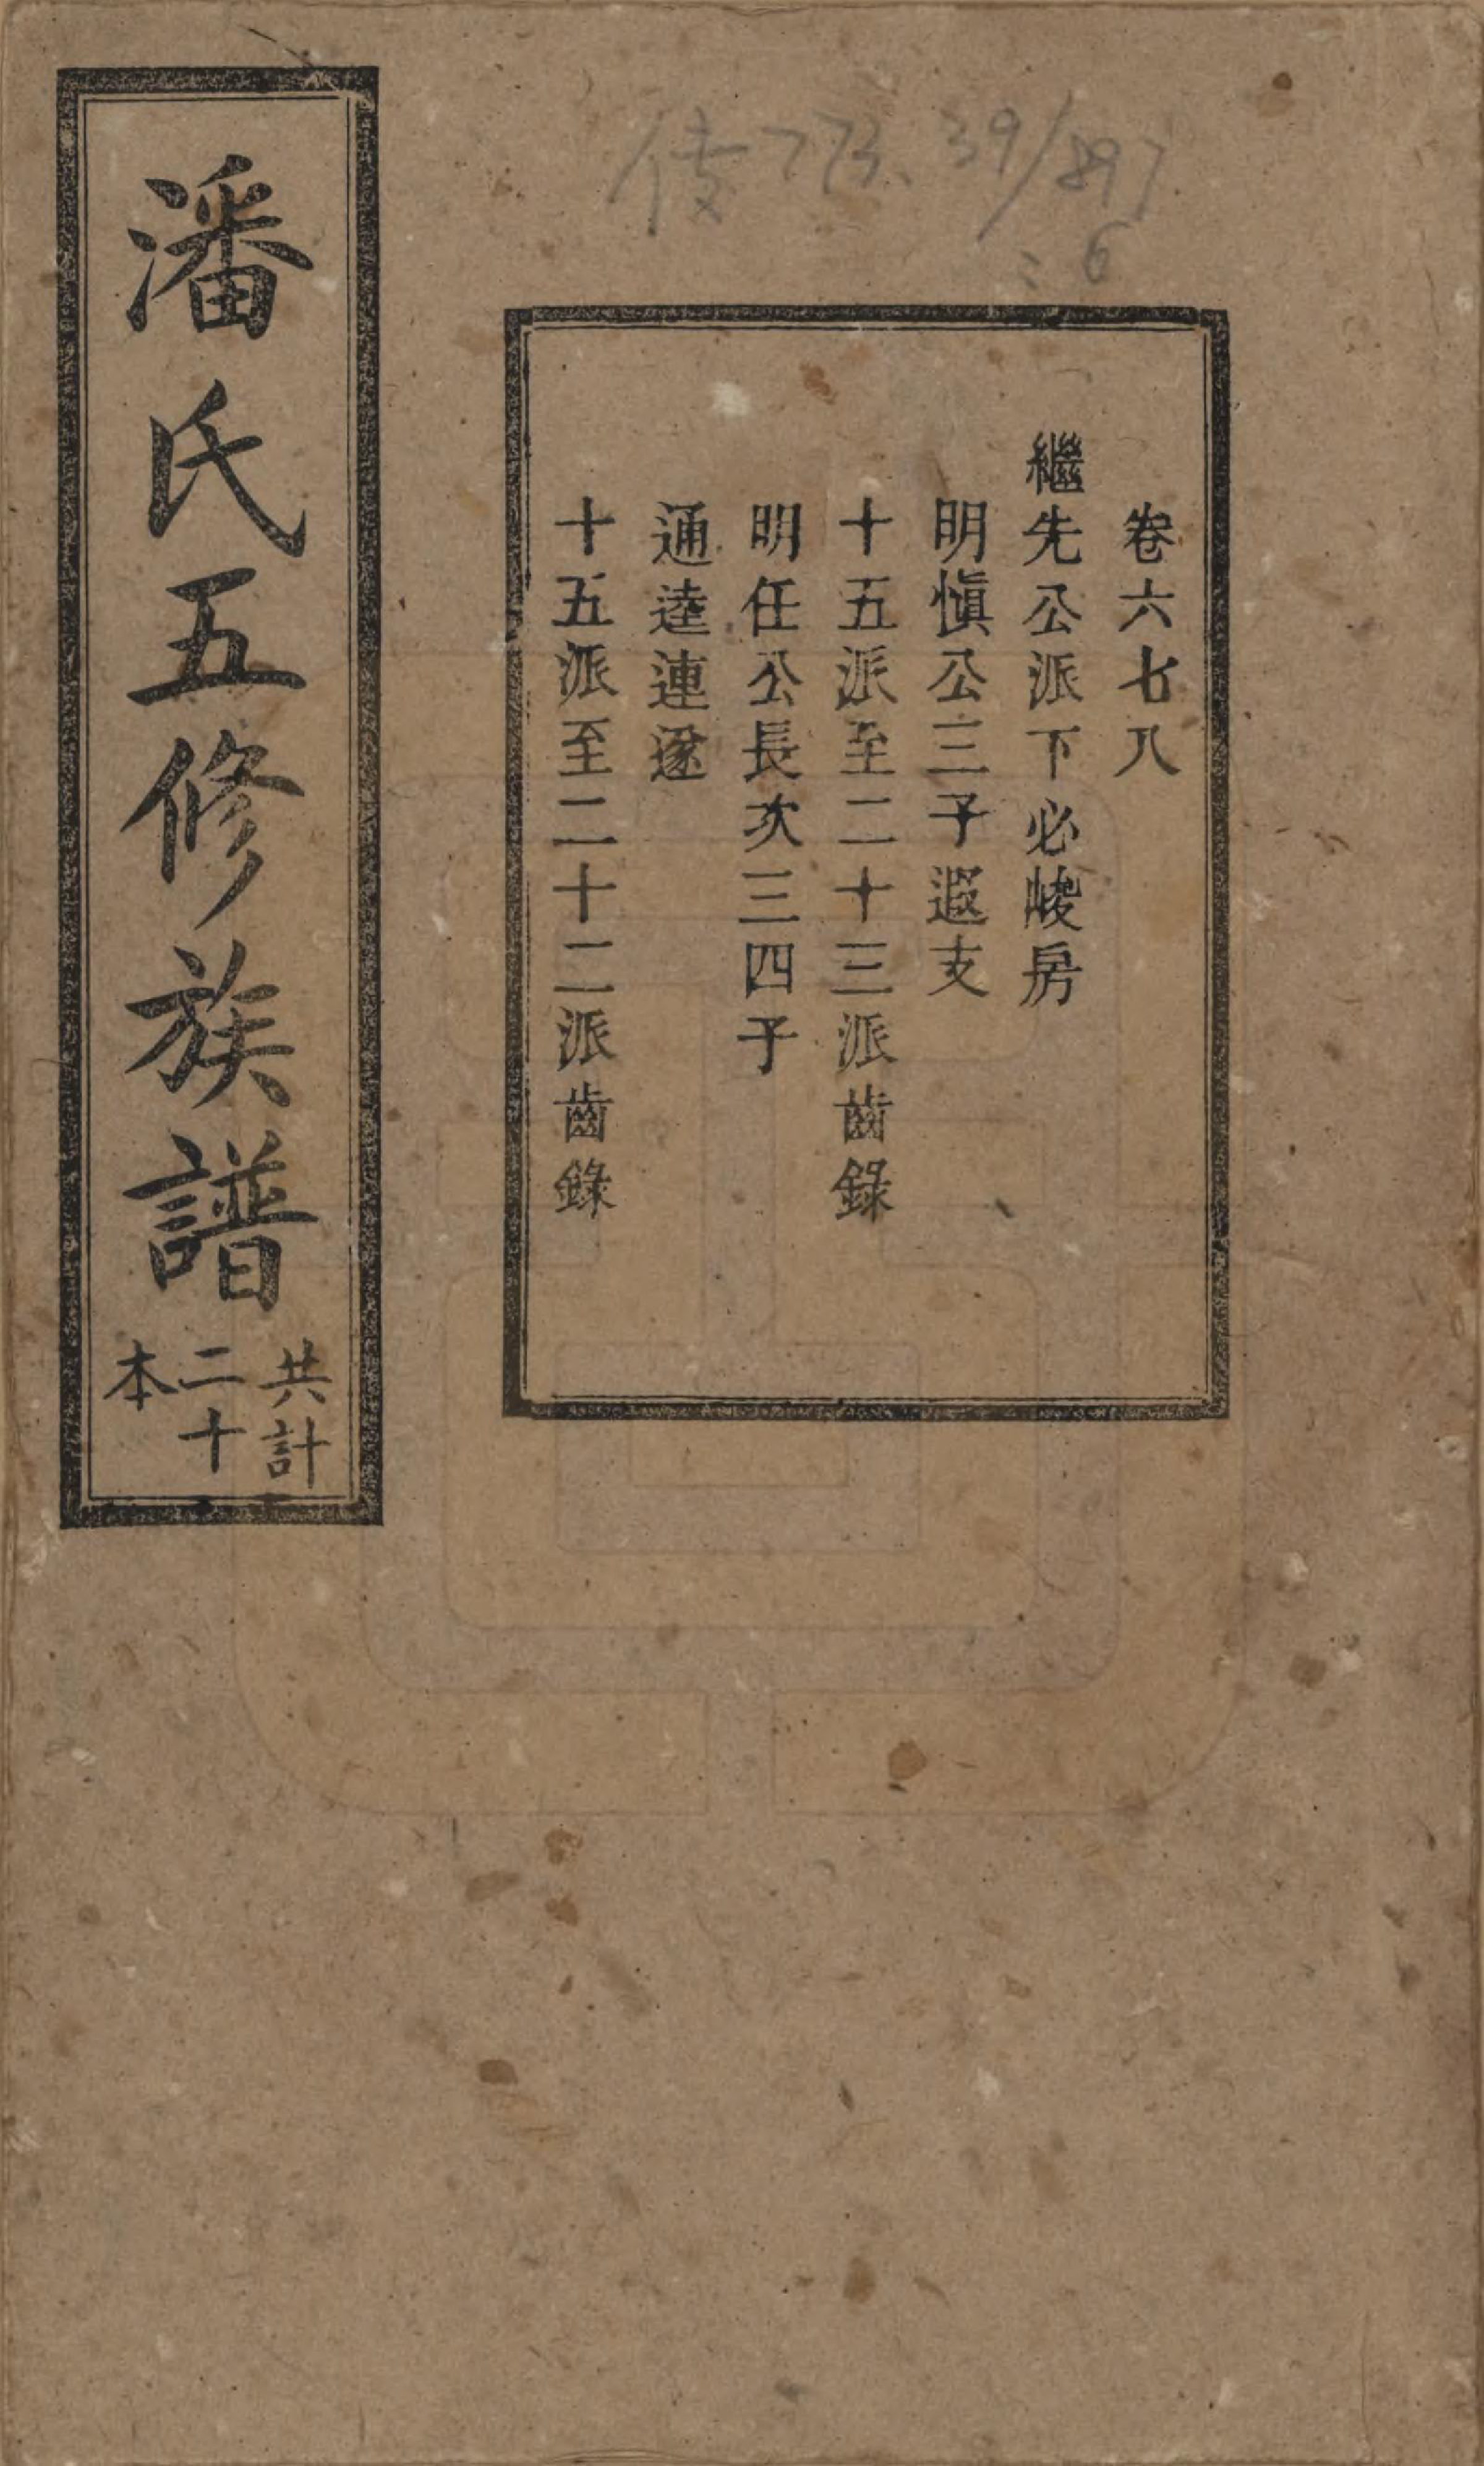 潘氏五修族譜
共計
二十
本
773.39/897
:6
卷六七八
繼先公派下必峻房
明愼公三子遐支
十五派至二十三派齒錄
明任公長次三四子
通逵連遂
十五派至二十二派齒錄